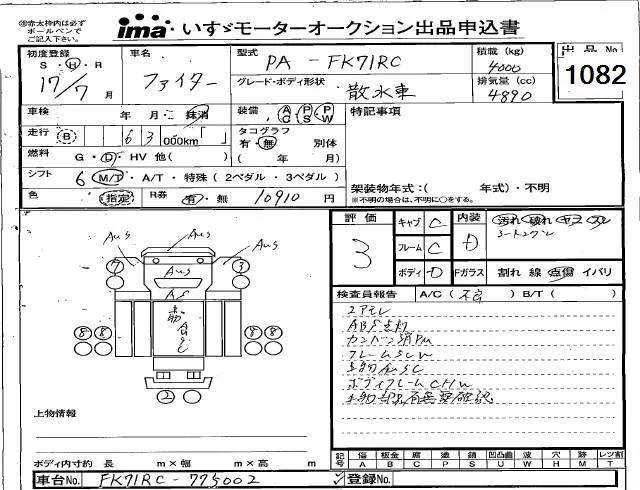 ※赤太枠内は必ず
ボールペンで
ご記入下さい。
ima いすゞモーターオークション出品申込書
初度登録
S・H・R
17/7月
車名
ファイター
型式
PA - FK71RC
グレード・ボディ形状
散水車
積載(kg)
4000
排気量(cc)
4890
出品No
1082
車検 年・月・抹消
装備 AC PS PW
特記事項
走行 B 63 000km「 」
タコグラフ
有・無 別体
( 年 月)
燃料 G・D・HV 他( )
シフト 6 M/T・A/T・特殊(2ペダル・3ペダル)
架装物年式:( 年式)・不明
※不明の場合は、不明に○をする。
色 指定 R券 有・無 10910円
評価
3
キャブ C
フレーム C
ボディ D
内装 D
汚れ 破れ ヤケ スレ
Fガラス 割れ 線 点傷 イバリ
検査員報告 A/C(不良) B/T( )
エアモレ
ABS点灯
AuS
AuS
AuS
AuS
7
3
8 8
8 8
2
上物情報
ボディ内寸約 長 m×幅 m×高 m
記号 傷A 板金B 腐C 塗P 錆S 凹凸曲U 波W 穴H 跡M レツ割T
車台No. FK71RC - 775002
登録No.